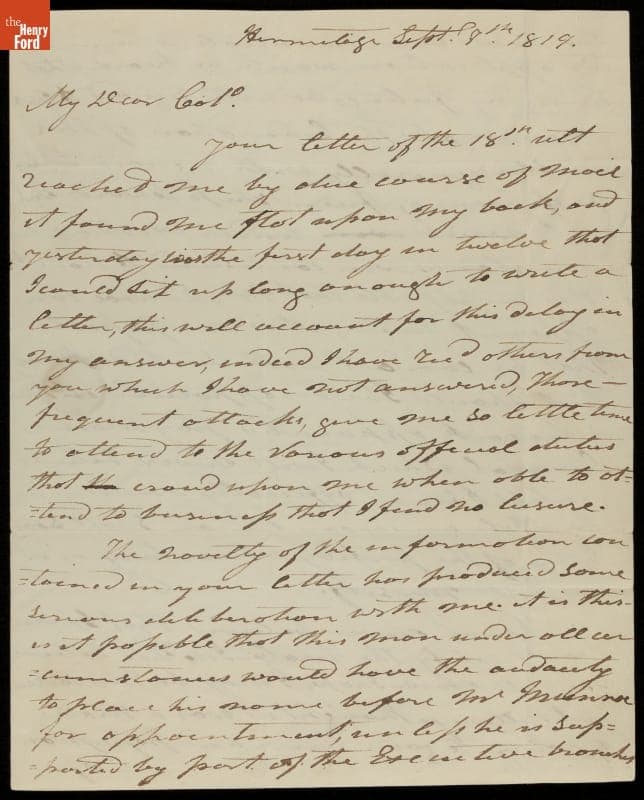 the
Henry
Ford
Hermitage Septr. 8th. 1819.
My Dear Colo.
your letter of the 18th. ult
reached me by due course of mail
it found me flat upon my back, and
yesterday was the first day in twelve that
I could sit up long anough to write a
letter, this will account for this delay in
my answer, indeed I have recd others from
you which I have not answered, Those
frequent attacks, give me so little time
to attend to the various official duties
that croud upon me when able to at-
=tend to business that I find no leisure.
The novelty of the information con
=tained in your letter has produced some
serious deliberation with me. it is this-
is it possible that this man under all cir
=cumstances would have the audacity
to place his name before Mr Munroe
for appointment, unless he is sup=
=ported by part of the Executive branches